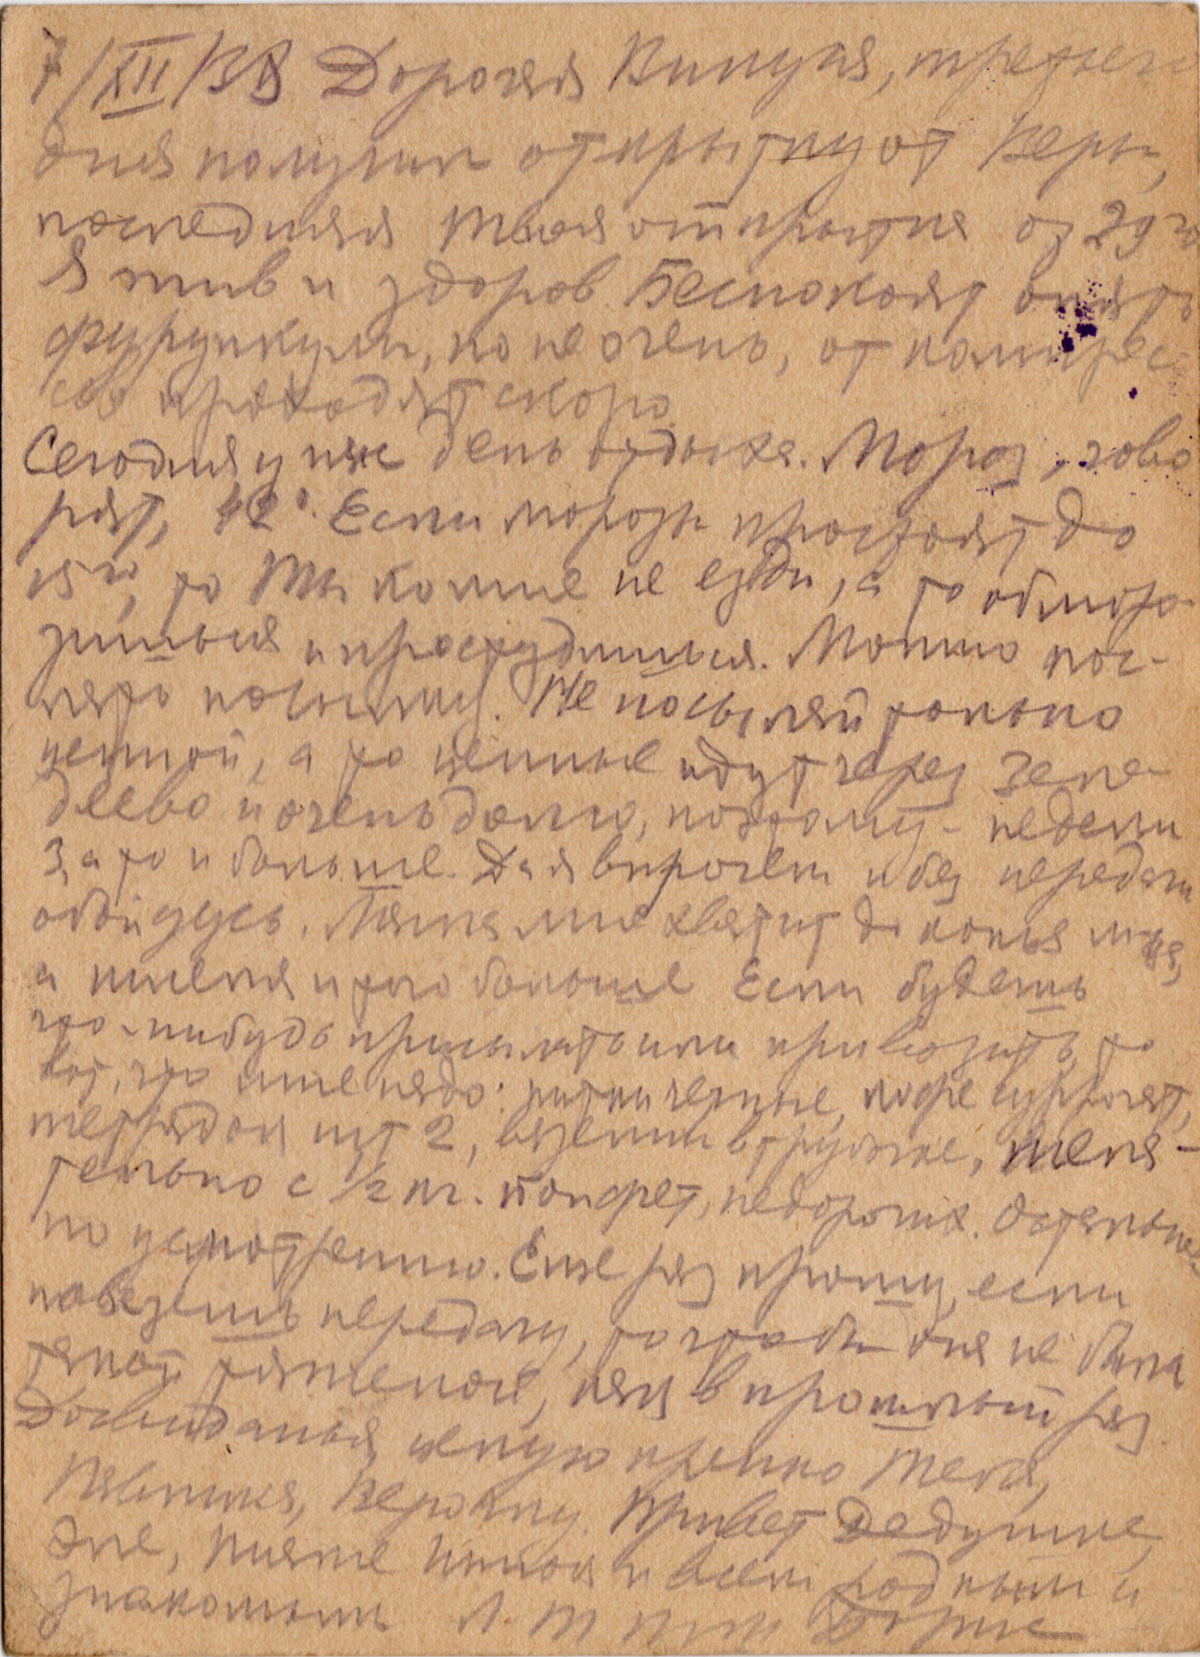 7/XII/38 Дорогая Винуся, третьего
дня получил открытку от Веры,
последняя твоя открытка от 29го
Я жив и здоров. Беспокоят опять
фурункулы, но не очень, от компрес-
сов проходят скоро
Сегодня у нас день отдыха. Мороз, гово
рят, 42°. Если морозы простоят до
15го, то Ты ко мне не езди, а то обморо-
зишься и простудишься. Можно пос-
лать посылку. Не посылай только
ценной, а то ценные идут через
и очень долго, поэтому - недели
3, а то и больше. Да я впрочем и без передачи
обойдусь. мне хватит до конца м-ца,
а и того больше Если будешь
что-нибудь присылать или привозить, то
вот, что мне надо: нитки черные, кофе суррогат,
тетрадок шт 2, вазелин в трубке, жела-
тельно с 1/2 кг. конфет, недорогих. Остальное
по усмотрению. Еще раз прошу, если
повезешь передачу, то чтобы она не была
такой тяжелой, как в прошлый раз.
Досвиданья, целую крепко Тебя,
Павлика, Верочку. Привет Дедушке,
и всем родным и
знакомым Борис